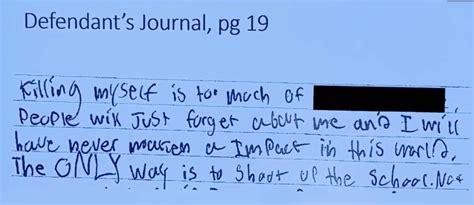 Defendant's Journal, pg 19
Killing myself is too much of
People will Just forget about me and I will
have never maden a Impact in this world.
The ONLY way is to shoot up the School. Not